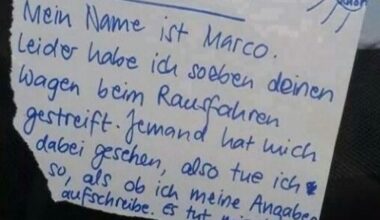 Mein Name ist Marco.
Leider habe ich soeben deinen
Wagen beim Rausfahren
gestreift. Jemand hat mich
dabei gesehen, also tue ich
so, als ob ich meine Angaben
aufschreibe. Es tut mir